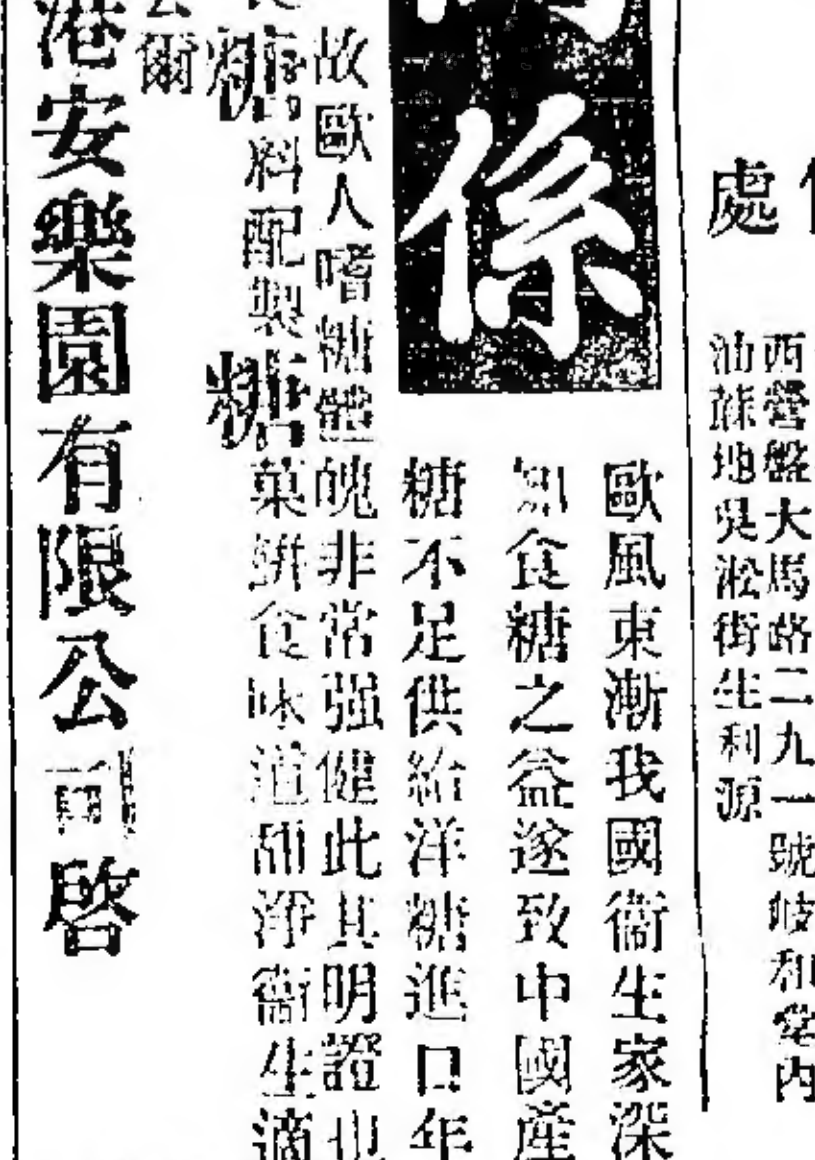 處
西營盤大馬路二九一號岐和堂內
油蔴地吳淞街生利源
係
歐風東漸我國衞生家深
知食糖之益遂致中國產
糖不足供給洋糖進口年
故歐人嗜糖體魄非常强健此其明證也
糖料配製糖菓餅食味道甜淨衞生適
爾
港安樂園有限公司啓